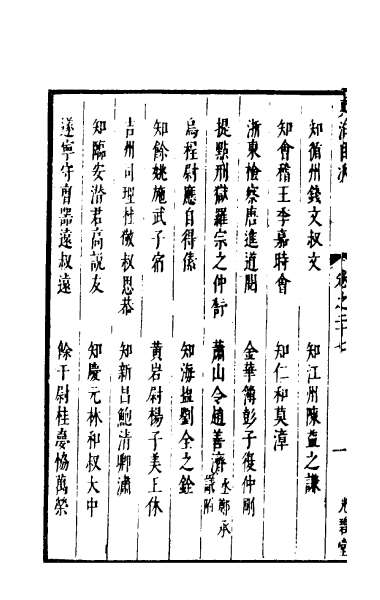 知循州錢文叔文　知江州陳益之謙
知會稽王季嘉時會　知仁和莫漳
浙東檢察唐進道閱　金華簿彭子復仲剛
提點刑獄羅宗之仲　蕭山令趙善濟丞鄭承議
烏程尉應自得傃　知海盐劉全之銓
知餘姚施武子宿　黃岩尉楊子美王休
吉州司理杜徽叔思恭　知新昌鮑清卿潚
知臨安潛君高說友　知慶元林和叔大中
遂寧守曹器遠叔遠　餘干尉桂夢協萬榮
卷之三十七
一
光碧堂